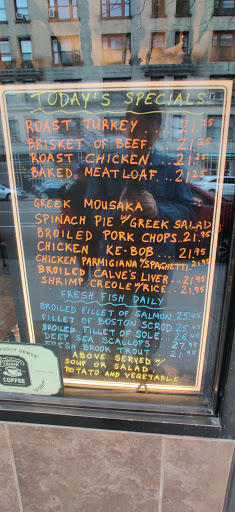 TODAY'S SPECIALS
ROAST TURKEY ... 21.25
BRISKET OF BEEF. 21.25
ROAST CHICKEN... 21.25
BAKED MEATLOAF ..21.25
GREEK MOUSAKA
SPINACH PIE W/ GREEK SALAD
BROILED PORK CHOPS..21.95
CHICKEN KE-BOB....21.95
CHICKEN PARMIGIANA W/SPAGHETTI, 21.95
BROILED CALVE'S LIVER...21.95
SHRIMP CREOLE W/ RICE..21.95
FRESH FISH DAILY
BROILED FILLET OF SALMON 25.45
FILLET OF BOSTON SCROD. 25.45
BROILED FILLET OF SOLE.. 26.45
DEEP SEA SCALLOPS... 27.95
FRESH BROOK TROUT.. 21.95
ABOVE SERVED W/
SOUP OR SALAD
POTATO AND VEGETABLE
SERVE
COFFEE